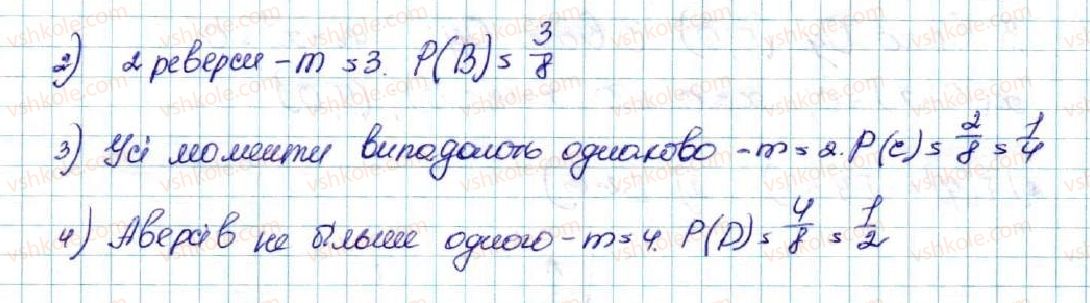 2) 2 реверси - m = 3. P(B) = 3/8
3) Усі монети випадають однаково - m = 2. P(C) = 2/8 = 1/4
4) Аверсів не більше одного - m = 4. P(D) = 4/8 = 1/2